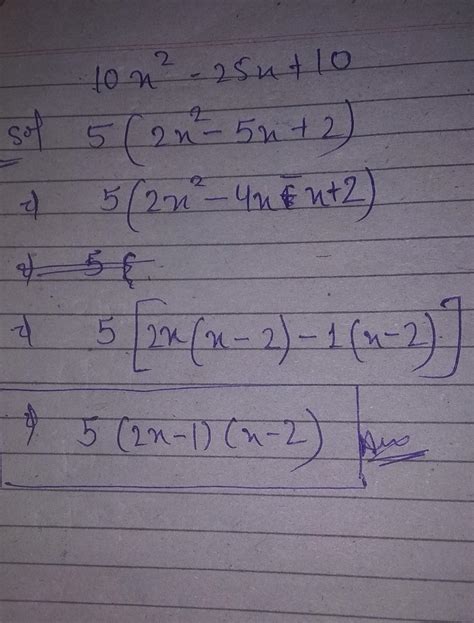 10x² - 25x + 10
Sol 5 (2x² - 5x + 2)
⇒ 5 (2x² - 4x - x + 2)
⇒ 5 {
⇒ 5 [2x (x - 2) - 1 (x - 2)]
⇒ 5 (2x - 1) (x - 2) Ans